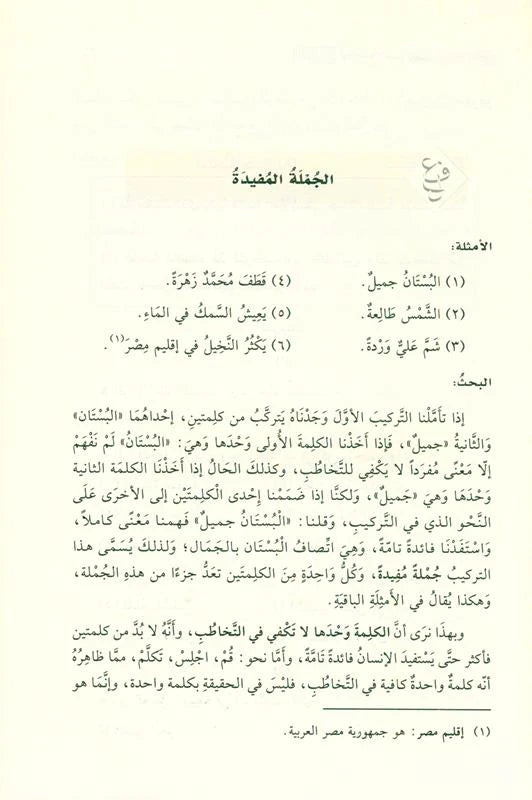 الجُمْلَةُ المُفيدَةُ
الأمثلة:
(١) البُسْتَانُ جميلٌ.    (٤) قَطَفَ مُحَمَّدٌ زَهْرَةً.
(٢) الشَّمْسُ طَالِعةٌ.    (٥) يَعِيشُ السَّمكُ في المَاءِ.
(٣) شَمَّ عَليٌّ وَرْدةً.    (٦) يَكْثُرُ النَّخِيلُ في إقليم مِصْرَ(١).
البحثُ:
إذا تأمَّلْنا التَّركيبَ الأوَّلَ وَجَدْنَاهُ يَتركَّبُ من كلمتينِ، إحداهُمَا «البُسْتَان»
وَالثَّانيةُ «جميلٌ»، فَإذا أخَذْنا الكلِمةَ الأُولى وَحْدَها وَهيَ: «البُسْتَانُ» لَمْ نَفْهَمْ
إلّا مَعْنًى مُفرَداً لا يَكْفِي للتَّخاطُبِ، وكذلكَ الحَالُ إذا أَخَذْنَا الكلمَة الثانية
وَحْدَها وَهيَ «جَميلٌ»، وَلكنَّا إذا ضَمَمْنا إحْدى الكَلِمتَيْن إلى الأخرَى عَلَى
النَّحْو الذي في التَّركيبِ، وَقلنا: «الْبُسْتَانُ جميلٌ» فَهمنا مَعْنًى كاملاً،
وَاسْتَفَدْنَا فائدةً تامّةً، وَهِيَ اتِّصافُ الْبُسْتَان بالجَمَال؛ وَلذلكَ يُسَمَّى هذا
التركيبُ جُملةً مُفِيدةً، وَكُلُّ وَاحِدةٍ مِنَ الكلِمتَين تعَدُّ جزءًا من هذهِ الجُمْلة،
وَهكذا يُقالُ في الأمثِلَةِ الباقيَةِ.
وبهذَا نرَى أنَّ الكلِمةَ وَحْدَها لا تَكْفي في التَّخاطُبِ، وأنَّهُ لا بُدَّ من كلمتين
فأكثر حتَّى يَسْتفيدَ الإنسانُ فائدةً تَامَّةً، وأمَّا نحو: قُمْ، اجلِسْ، تَكلَّمْ، ممَّا ظاهِرُهُ
أنّه كلمةٌ واحدةٌ كافية في التَّخاطُبِ، فليْسَ في الحقيقةِ بكلمة واحدة، وإنَّمَا هو
(١) إقليم مصر: هو جمهورية مصر العربية.